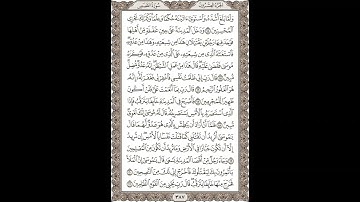 سورة القصص الجزء العشرون
ولما بلغ أشده واستوى ءاتينه حكما وعلما وكذلك نجزي
المحسنين ١٤ ودخل المدينة على حين غفلة من أهلها
فوجد فيها رجلين يقتتلان هذا من شيعته وهذا من عدوه
فاستغثه الذي من شيعته على الذي من عدوه فوكزه
موسى فقضى عليه قال هذا من عمل الشيطن إنه عدو مضل
مبين ١٥ قال رب إني ظلمت نفسي فاغفر لي فغفر له إنه هو
الغفور الرحيم ١٦ قال رب بما أنعمت علي فلن أكون
ظهيرا للمجرمين ١٧ فأصبح في المدينة خائفا يترقب فإذا
الذي استنصره بالأمس يستصرخه قال له موسى إنك لغوي
مبين ١٨ فلما أن أراد أن يبطش بالذي هو عدو لهما قال
يموسى أتريد أن تقتلني كما قتلت نفسا بالأمس إن تريد
إلا أن تكون جبارا في الأرض وما تريد أن تكون من المصلحين
١٩ وجاء رجل من أقصا المدينة يسعى قال يموسى إن الملأ
يأتمرون بك ليقتلوك فاخرج إني لك من النصحين ٢٠
فخرج منها خائفا يترقب قال رب نجني من القوم الظلمين ٢١
٣٨٧